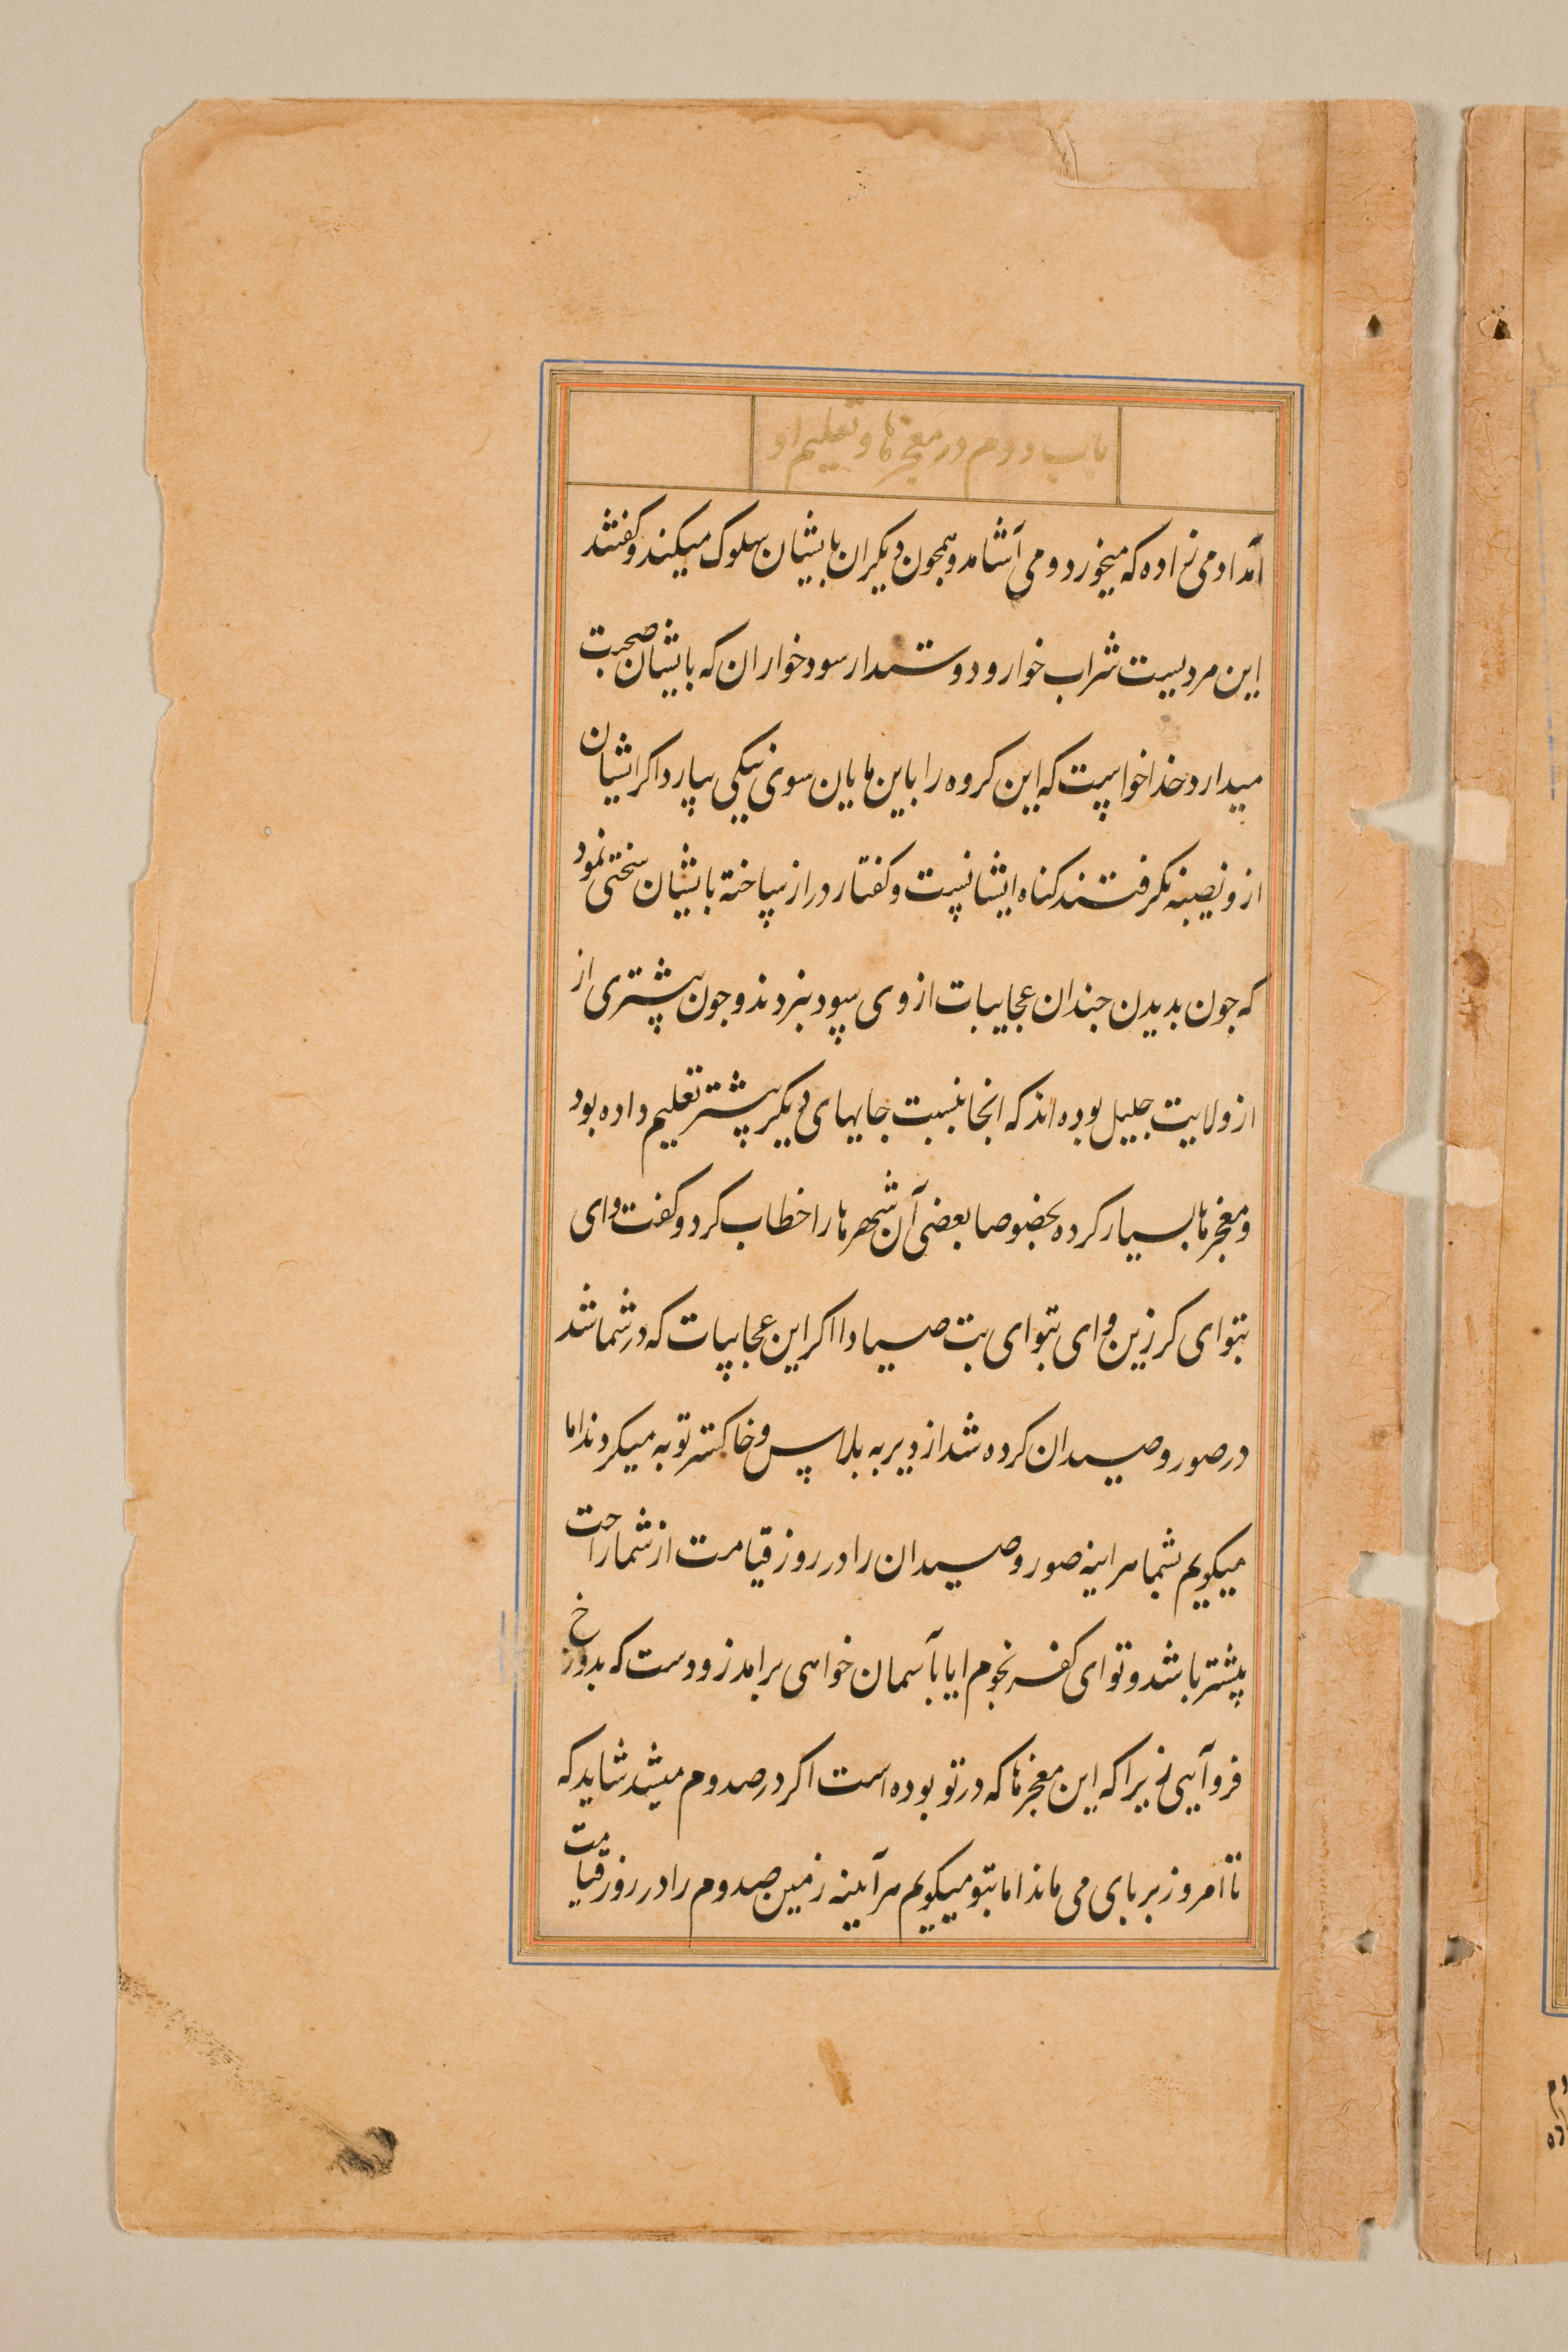 باب دوم در معجزها و تعلیم او
آمد ادمی زاده که میخورد و می آشامد و همچون دیکران بایشان سلوک میکند و کفتند
این مردیست شراب خوار و دوستدار سود خواران که بایشان صحبت
میدارد خدا خواست که این کروه را باین مایان سوی نیکی بیارد اکر ایشان
ازو نصیبه نکرفتند کناه ایشانست و کفتار دراز ساخته بایشان سختی نمود
که چون بدیدن چندان عجایبات از وی سود نبردند و چون بیشتری از
از ولایت جلیل بوده اند که انجا بنسبت جایهای دیکر بیشتر تعلیم داده بود
و معجزها بسیار کرده بخصوصا بعضی آن شهرها را خطاب کرد و کفت وای
بتو ای کرزین وای بتو ای بت صیادا اکر این عجایبات که در شما شد
در صور و صیدان کرده شد از دیر به پلاس و خاکستر توبه میکردند اما
میکویم بشما هراینه صور و صیدان را در روز قیامت از شما راحت
بیشتر باشد و تو ای کفرنحوم ایا بآسمان خواهی برامد زودست که بدوزخ
فرو آیی زیرا که این معجزها که در تو بوده است اکر در صدوم میشد شاید که
تا امروز بر پای می ماند اما بتو میکویم هرآینه زمین صدوم را در روز قیامت